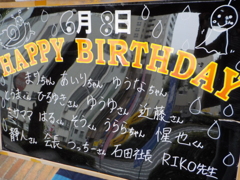 6月8日
HAPPY BIRTHDAY
まりちゃん あいりちゃん ゆうなちゃん
ひろゆきさん ゆうゆさん 近藤さん
はるくん そうくん うららちゃん 惺也くん
静人さん 会長 つっちーさん 石田社長 RIKO先生